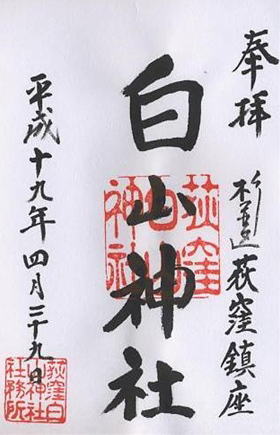 奉拝
杉並区荻窪鎮座
白山神社
荻窪白山神社
平成十九年四月二十九日
荻窪白山神社社務所